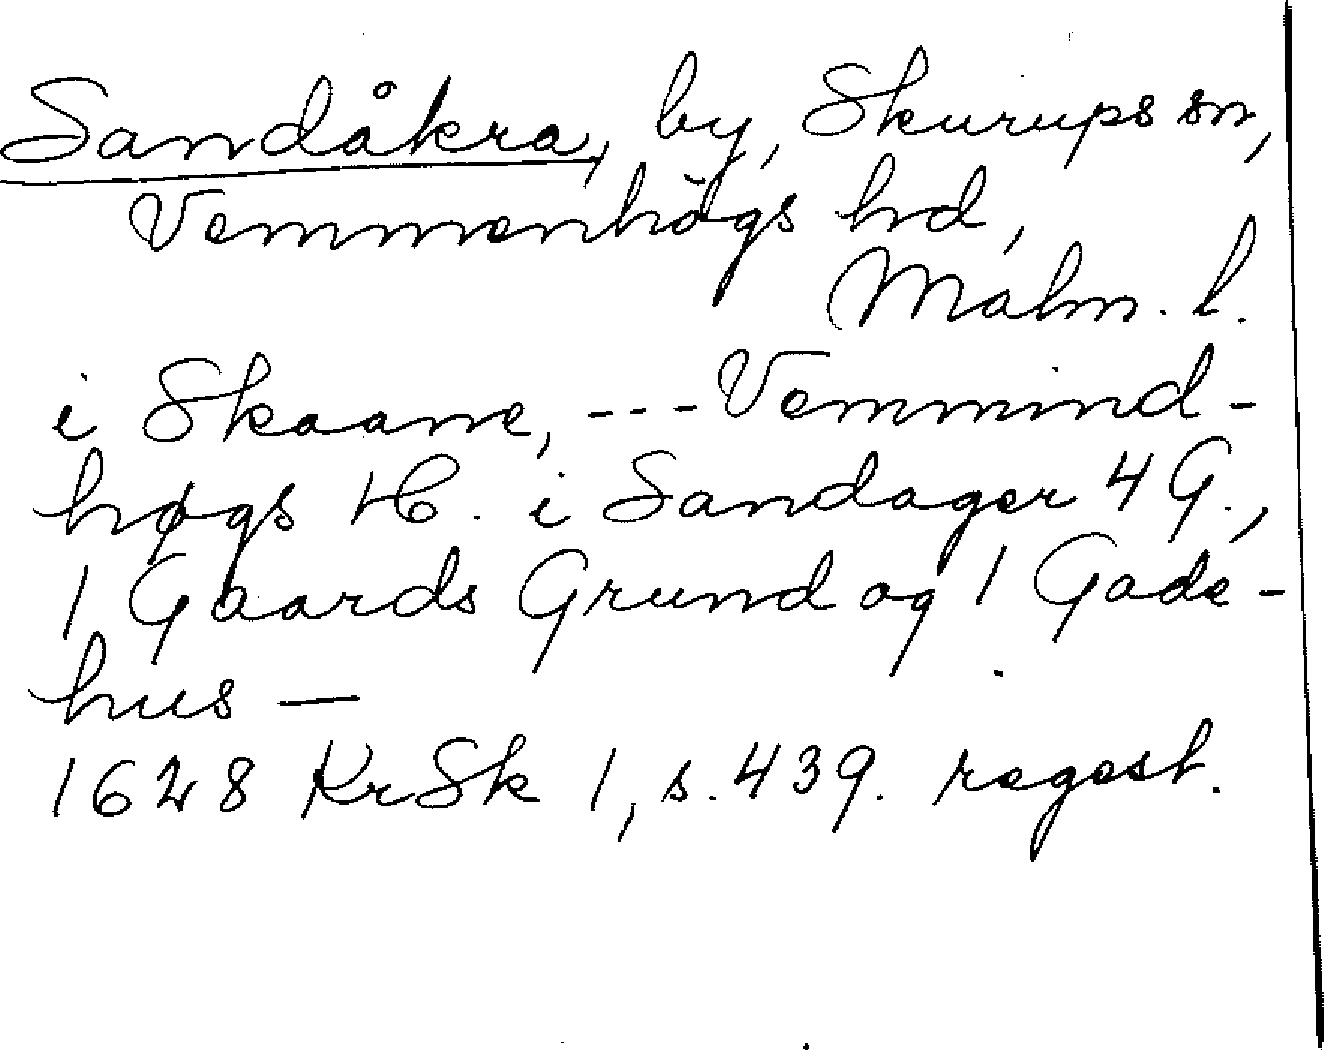 Sandåkra, by, Skurups sn,
Vemmenhögs hd,
Malm. l.
i Skaane, --- Vemmind-
høgs H. i Sandager 4 G.,
1 Gaards Grund og 1 Gade-
hus —
1628 KrSk 1, s. 439. regest.